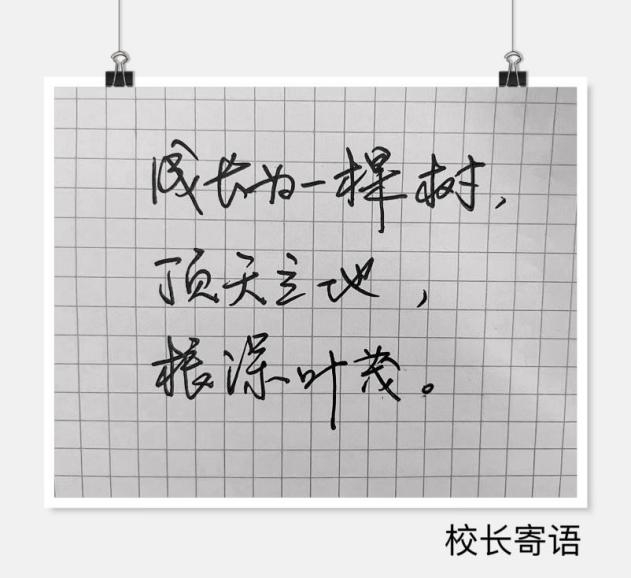 成长为一棵树，
顶天立地，
根深叶茂。
校长寄语